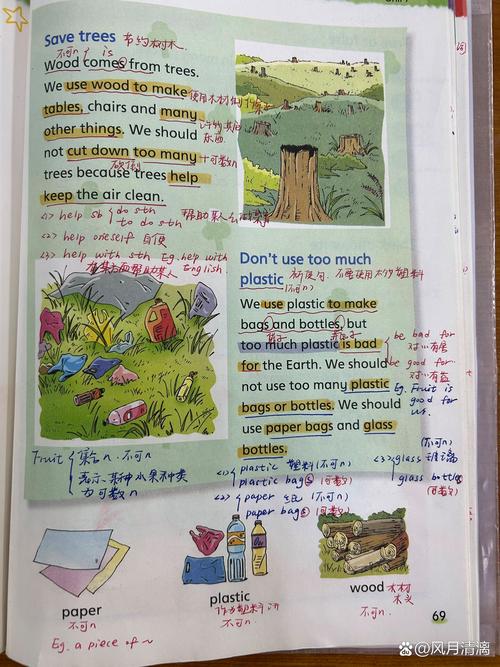 Save trees 节约树木.
不可n is
Wood comes from trees.
We use wood to make 使用木材做
tables, chairs and many 许多其他
other things. We should 东西
not cut down too many +可数n
砍倒
trees because trees help
keep the air clean.
<1> help sb do sth 帮助某人做某事
to do sth
<2> help oneself 自便
<3> help with sth Eg. help with
在某方面帮助某人 English.
Don't use too much
plastic 祈使句. 不要使用太多塑料
(不可n)
We use plastic to make
bags and bottles, but be bad for
袋子 瓶子 对…有害
too much plastic is bad
for the Earth. We should be good for
对…有益
not use too many plastic Eg. Fruit is
bags or bottles. We should good for
us.
use paper bags and glass
bottles.
Fruit 集合n. 不可n
表示某种水果种类
为可数n
<1> plastic 塑料(不可n)
plastic bags (可数)
<2> paper 纸 (不可n)
paper bags (可数)
(不可n)
<3> glass 玻璃
glass bottles
(可数)
paper
不可n
Eg. a piece of ~
plastic
作为塑料讲
不可n.
wood 木材
木头
不可n.
69
@风月清漓